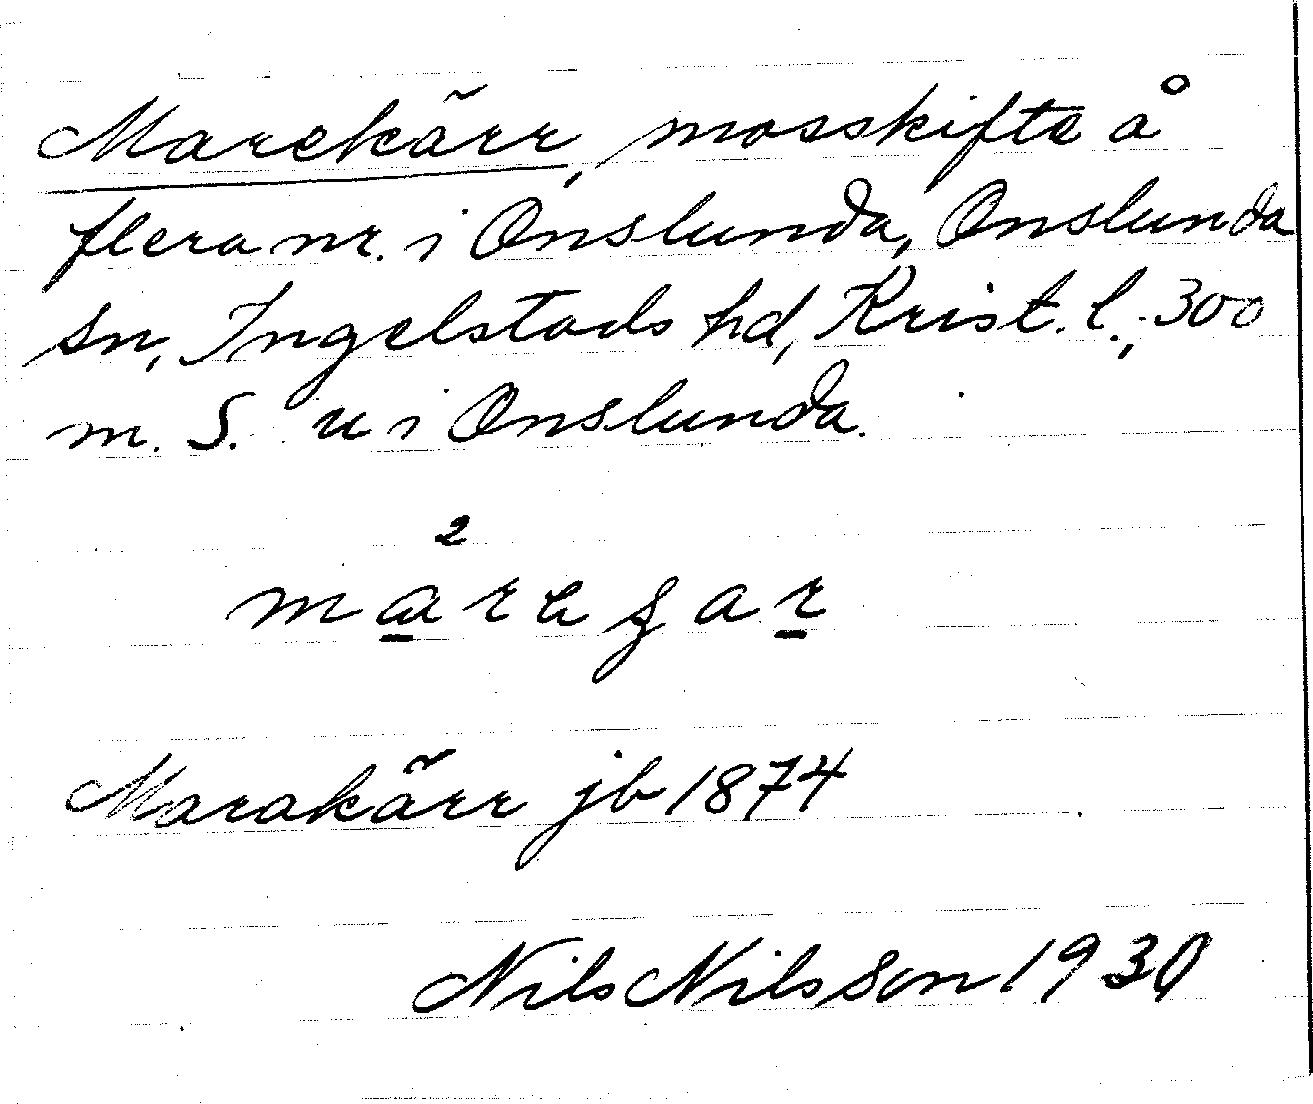 Marekärr, mosskifte å
flera nr. i Onslunda, Onslunda
sn, Ingelstads hd, Krist. l., 300
m. S. u i Onslunda.
Marakärr jb 1874
Nils Nilsson 1930